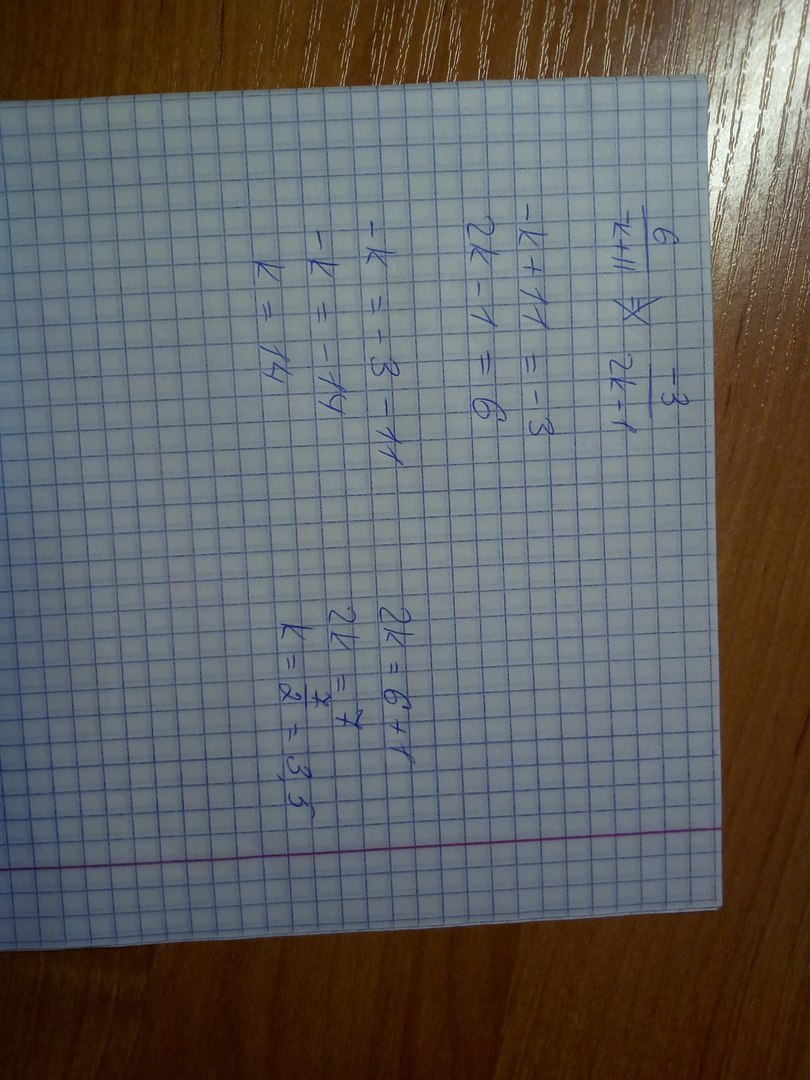 6/-k+11 = -3/2k-1
-k+11 = -3
2k-1 = 6
-k = -3-11
-k = -14
k = 14
2k = 6+1
2k = 7
k = 7/2 = 3,5